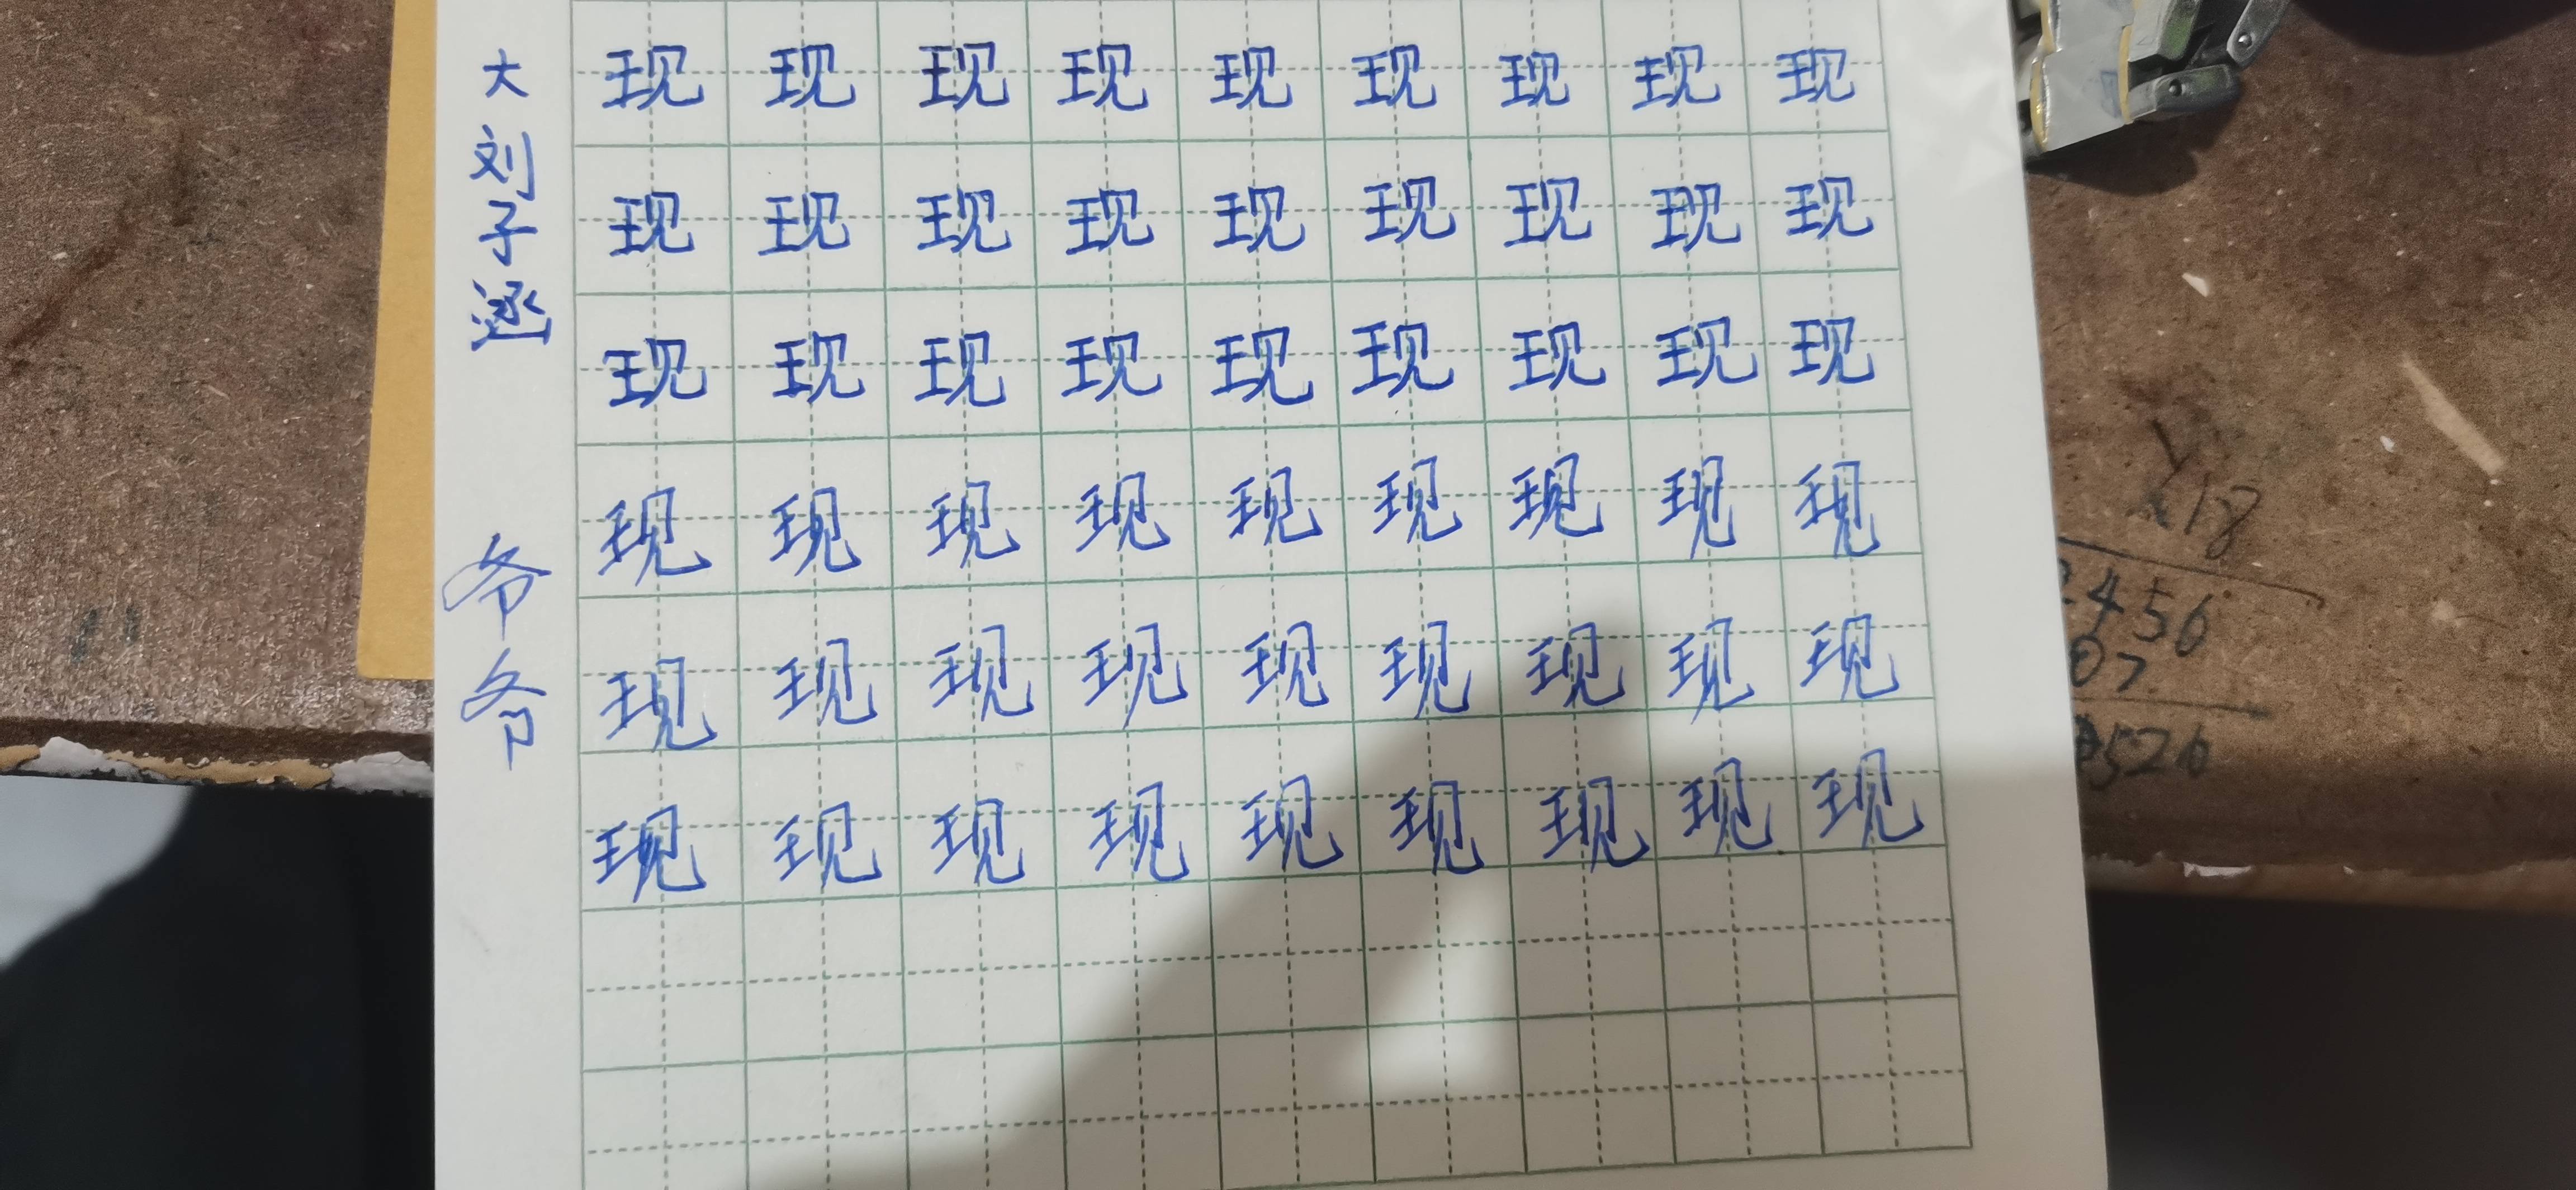 大刘子涵
爷爷
现现现现现现现现现
现现现现现现现现现
现现现现现现现现现
现现现现现现现现现
现现现现现现现现现
现现现现现现现现现
x18
2456
07
526